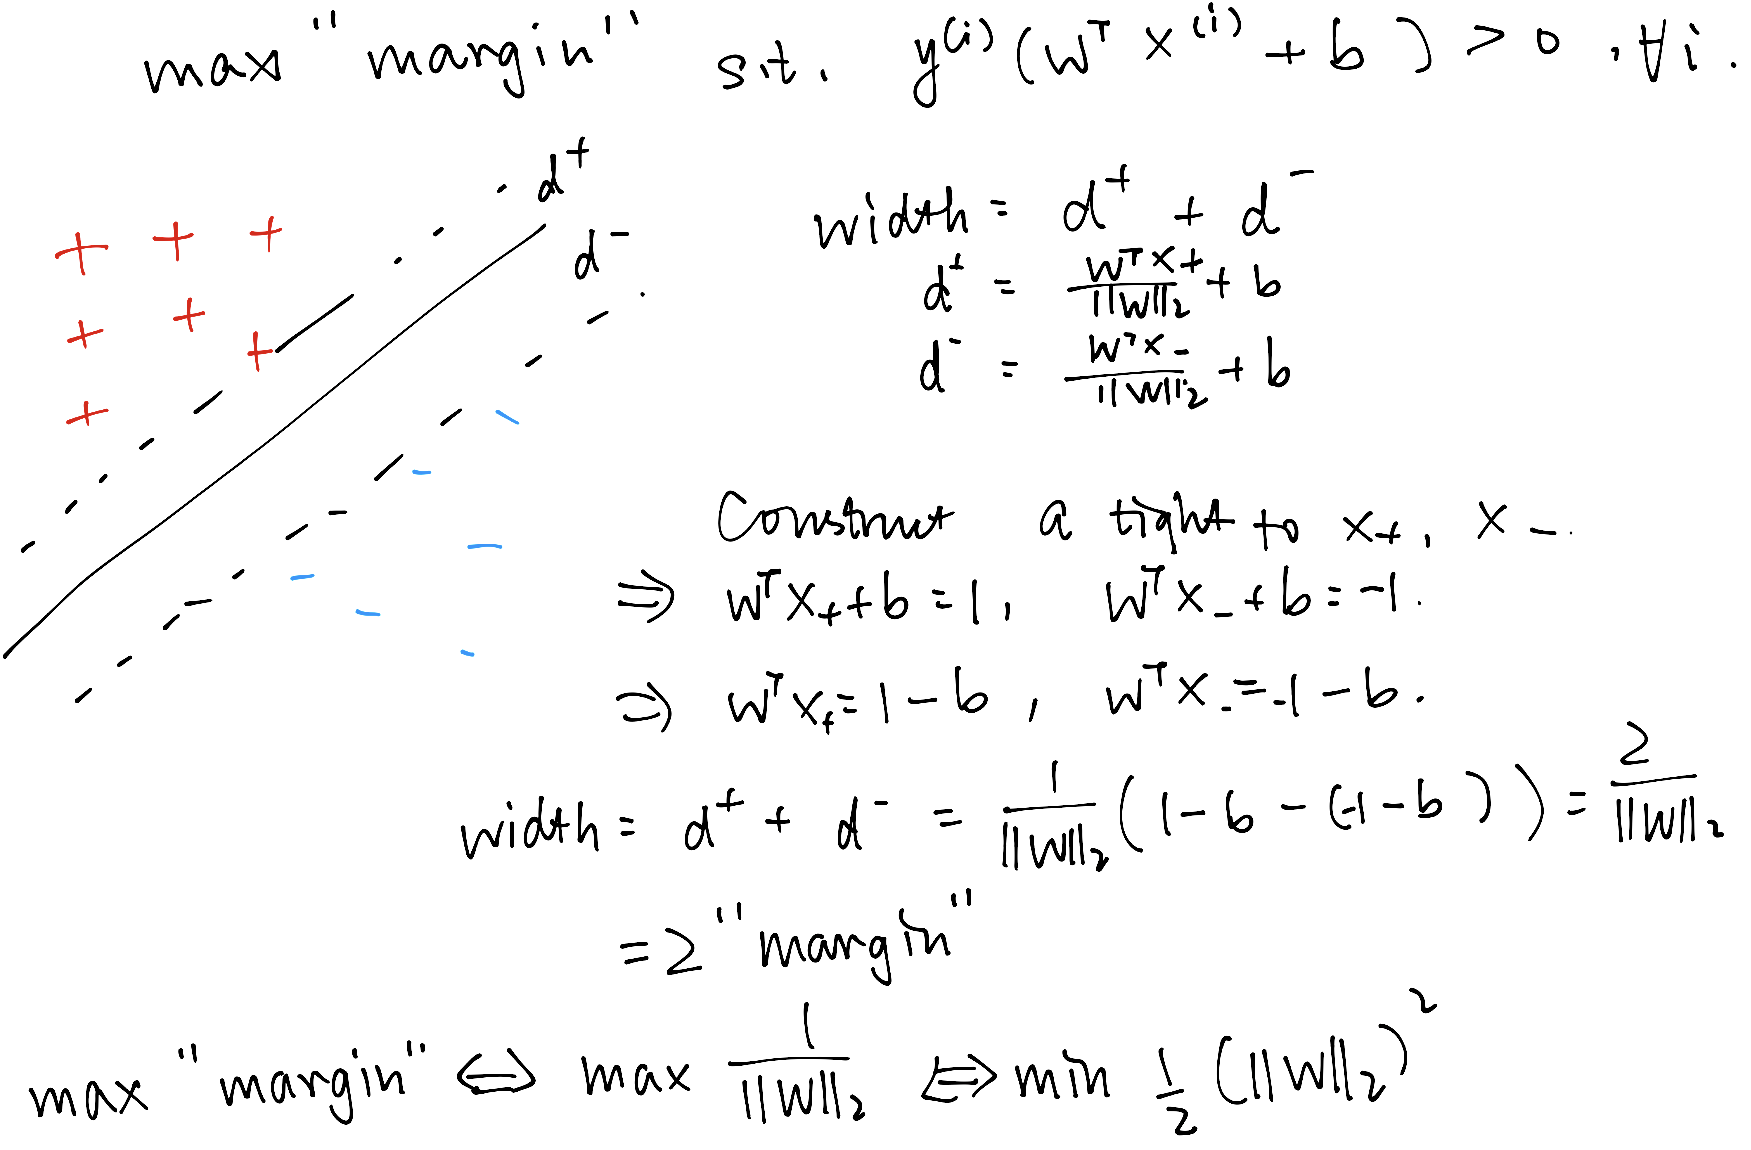 max "margin" s.t. y⁽ⁱ⁾(wᵀ x⁽ⁱ⁾ + b) > 0, ∀i.
d⁺
d⁻
+ + +
+ +
+
+
width = d⁺ + d⁻
d⁺ = wᵀx₊/||w||₂ + b
d⁻ = wᵀx₋/||w||₂ + b
Construct a tight to x₊, x₋.
⇒ wᵀx₊+b=1, wᵀx₋+b=-1.
⇒ wᵀx₊=1-b, wᵀx₋=-1-b.
width = d⁺ + d⁻ = 1/||w||₂ (1-b-(-1-b)) = 2/||w||₂
=2 "margin"
max "margin" ⇔ max 1/||w||₂ ⇔ min 1/2 (||w||₂)²